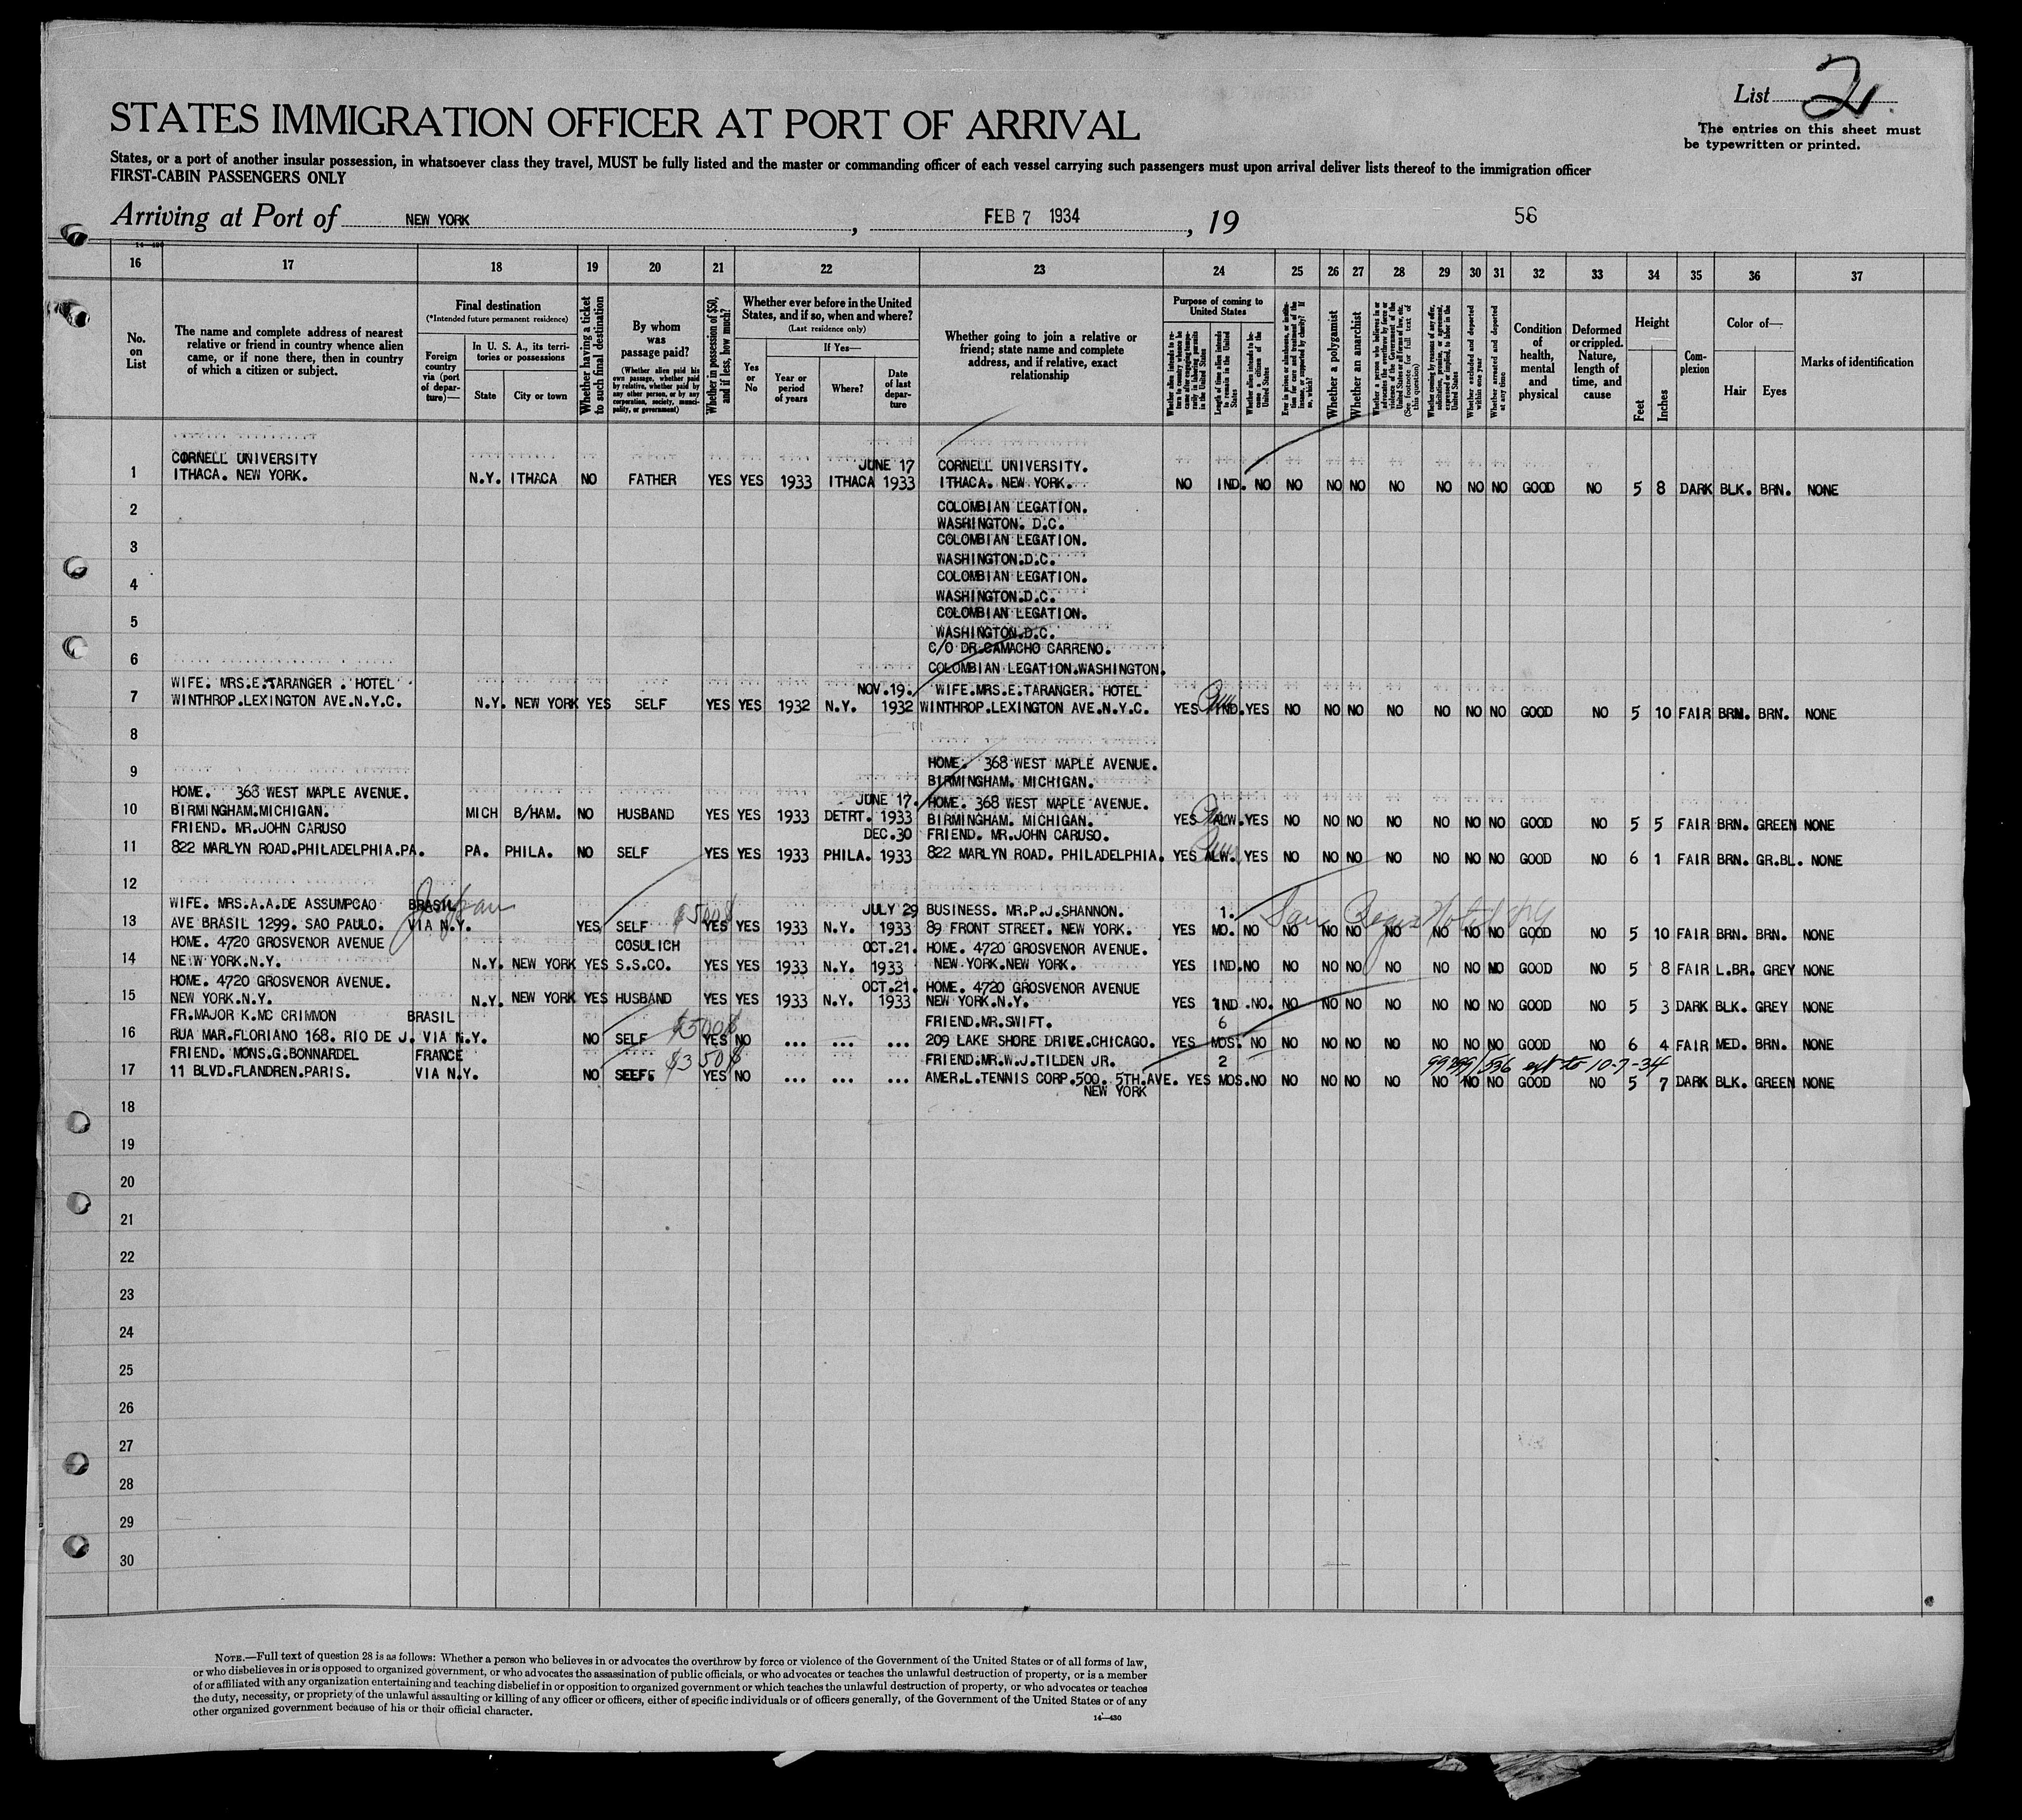 List 2
The entries on this sheet must
be typewritten or printed.
STATES IMMIGRATION OFFICER AT PORT OF ARRIVAL
States, or a port of another insular possession, in whatsoever class they travel, MUST be fully listed and the master or commanding officer of each vessel carrying such passengers must upon arrival deliver lists thereof to the immigration officer
FIRST-CABIN PASSENGERS ONLY
Arriving at Port of NEW YORK, FEB 7 1934, 19 56
14—430
16 17 18 19 20 21 22 23 24 25 26 27 28 29 30 31 32 33 34 35 36 37
No. on List
The name and complete address of nearest relative or friend in country whence alien came, or if none there, then in country of which a citizen or subject.
Final destination
(*Intended future permanent residence)
Foreign country via (port of departure)—
In U. S. A., its territories or possessions
State
City or town
Whether having a ticket to such final destination
By whom was passage paid?
(Whether alien paid his own passage, whether paid by relative, whether paid by any other person, or by any corporation, society, municipality, or government)
Whether in possession of $50, and if less, how much?
Whether ever before in the United States, and if so, when and where?
(Last residence only)
Yes or No
If Yes—
Year or period of years
Where?
Date of last departure
Whether going to join a relative or friend; state name and complete address, and if relative, exact relationship
Purpose of coming to United States
Whether alien intends to return to country whence he came after engaging temporarily in laboring pursuits in the United States
Length of time alien intends to remain in the United States
Whether alien intends to become a citizen of the United States
Ever in prison or almshouse, or institution for care and treatment of the insane, or supported by charity? If so, which?
Whether a polygamist
Whether an anarchist
Whether a person who believes in or advocates the overthrow by force or violence of the Government of the United States or all forms of law, etc. (See footnote for full text of this question)
Whether coming by reason of any offer, solicitation, promise, or agreement, expressed or implied, to labor in the United States
Whether excluded and deported within one year
Whether arrested and deported at any time
Condition of health, mental and physical
Deformed or crippled. Nature, length of time, and cause
Height
Feet
Inches
Complexion
Color of—
Hair
Eyes
Marks of identification
CORNELL UNIVERSITY JUNE 17 CORNELL UNIVERSITY.
1 ITHACA. NEW YORK. N.Y. ITHACA NO FATHER YES YES 1933 ITHACA 1933 ITHACA. NEW YORK. NO IND. NO NO NO NO NO NO NO NO GOOD NO 5 8 DARK BLK. BRN. NONE
2 COLOMBIAN LEGATION.
WASHINGTON. D.C.
3 COLOMBIAN LEGATION.
WASHINGTON.D.C.
4 COLOMBIAN LEGATION.
WASHINGTON.D.C.
5 COLOMBIAN LEGATION.
WASHINGTON.D.C.
6 C/O DR.CAMACHO CARRENO.
COLOMBIAN LEGATION.WASHINGTON.
WIFE. MRS.E.TARANGER . HOTEL NOV.19. WIFE.MRS.E.TARANGER. HOTEL
7 WINTHROP.LEXINGTON AVE.N.Y.C. N.Y. NEW YORK YES SELF YES YES 1932 N.Y. 1932 WINTHROP.LEXINGTON AVE.N.Y.C. YES IND. YES NO NO NO NO NO NO NO GOOD NO 5 10 FAIR BRN. BRN. NONE
8
9 HOME. 368 WEST MAPLE AVENUE.
BIRMINGHAM. MICHIGAN.
HOME. 368 WEST MAPLE AVENUE. JUNE 17. HOME. 368 WEST MAPLE AVENUE.
10 BIRMINGHAM.MICHIGAN. MICH B/HAM. NO HUSBAND YES YES 1933 DETRT. 1933 BIRMINGHAM. MICHIGAN. YES ALW. YES NO NO NO NO NO NO NO GOOD NO 5 5 FAIR BRN. GREEN NONE
FRIEND. MR.JOHN CARUSO DEC.30 FRIEND. MR.JOHN CARUSO.
11 822 MARLYN ROAD.PHILADELPHIA.PA. PA. PHILA. NO SELF YES YES 1933 PHILA. 1933 822 MARLYN ROAD. PHILADELPHIA. YES ALW. YES NO NO NO NO NO NO NO GOOD NO 6 1 FAIR BRN. GR.BL. NONE
12
WIFE. MRS.A.A.DE ASSUMPCAO BRASIL JULY 29 BUSINESS. MR.P.J.SHANNON. 1.
13 AVE BRASIL 1299. SAO PAULO. VIA N.Y. YES SELF $500$ YES YES 1933 N.Y. 1933 89 FRONT STREET. NEW YORK. YES MO. NO NO NO NO NO NO NO NO GOOD NO 5 10 FAIR BRN. BRN. NONE
HOME. 4720 GROSVENOR AVENUE COSULICH OCT.21. HOME. 4720 GROSVENOR AVENUE.
14 NEW YORK.N.Y. N.Y. NEW YORK YES S.S.CO. YES YES 1933 N.Y. 1933 NEW YORK.NEW YORK. YES IND. NO NO NO NO NO NO NO NO GOOD NO 5 8 FAIR L.BR. GREY NONE
HOME. 4720 GROSVENOR AVENUE. OCT.21. HOME. 4720 GROSVENOR AVENUE
15 NEW YORK.N.Y. N.Y. NEW YORK YES HUSBAND YES YES 1933 N.Y. 1933 NEW YORK.N.Y. YES IND .NO. NO NO NO NO NO NO NO GOOD NO 5 3 DARK BLK. GREY NONE
FR.MAJOR K.MC CRIMMON BRASIL FRIEND.MR.SWIFT. 6
16 RUA MAR.FLORIANO 168. RIO DE J. VIA N.Y. NO SELF $500$ YES NO ... ... ... 209 LAKE SHORE DRIVE.CHICAGO. YES MOS. NO NO NO NO NO NO NO NO GOOD NO 6 4 FAIR MED. BRN. NONE
FRIEND. MONS.G.BONNARDEL FRANCE FRIEND.MR.W.J.TILDEN JR. 2 ext to 10-7-34
17 11 BLVD.FLANDREN.PARIS. VIA N.Y. NO SELF. $350$ YES NO ... ... ... AMER.L.TENNIS CORP.500. 5TH.AVE. YES MOS. NO NO NO NO NO NO NO NO GOOD NO 5 7 DARK BLK. GREEN NONE
NEW YORK
18
19
20
21
22
23
24
25
26
27
28
29
30
NOTE.—Full text of question 28 is as follows: Whether a person who believes in or advocates the overthrow by force or violence of the Government of the United States or of all forms of law,
or who disbelieves in or is opposed to organized government, or who advocates the assassination of public officials, or who advocates or teaches the unlawful destruction of property, or is a member
of or affiliated with any organization entertaining and teaching disbelief in or opposition to organized government or which teaches the unlawful destruction of property, or who advocates or teaches
the duty, necessity, or propriety of the unlawful assaulting or killing of any officer or officers, either of specific individuals or of officers generally, of the Government of the United States or of any
other organized government because of his or their official character.
14—430